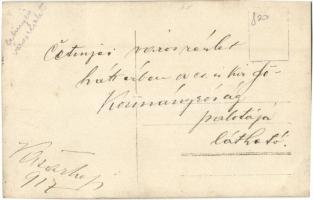 Cetinjei
városrészlet
820
Cetinjei városrészlet
háttérben a cs. és kir. Fő-
Kormányzóság
palotája
látható.
917